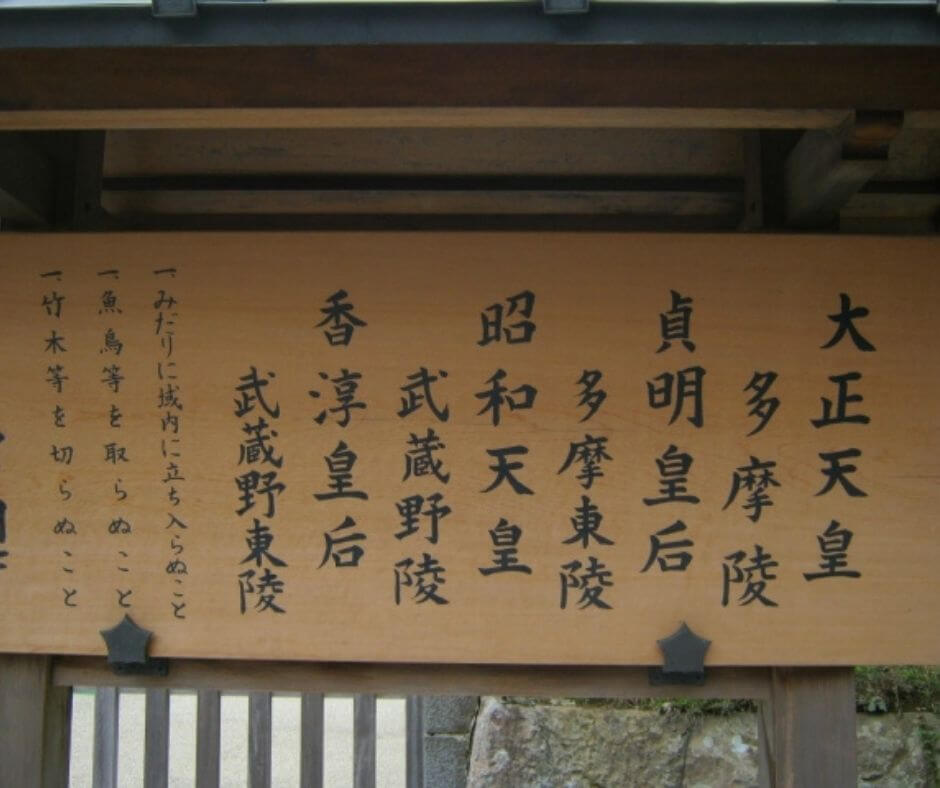 大正天皇
多摩陵
貞明皇后
多摩東陵
昭和天皇
武蔵野陵
香淳皇后
武蔵野東陵
一、みだりに域内に立ち入らぬこと
一、魚鳥等を取らぬこと
一、竹木等を切らぬこと